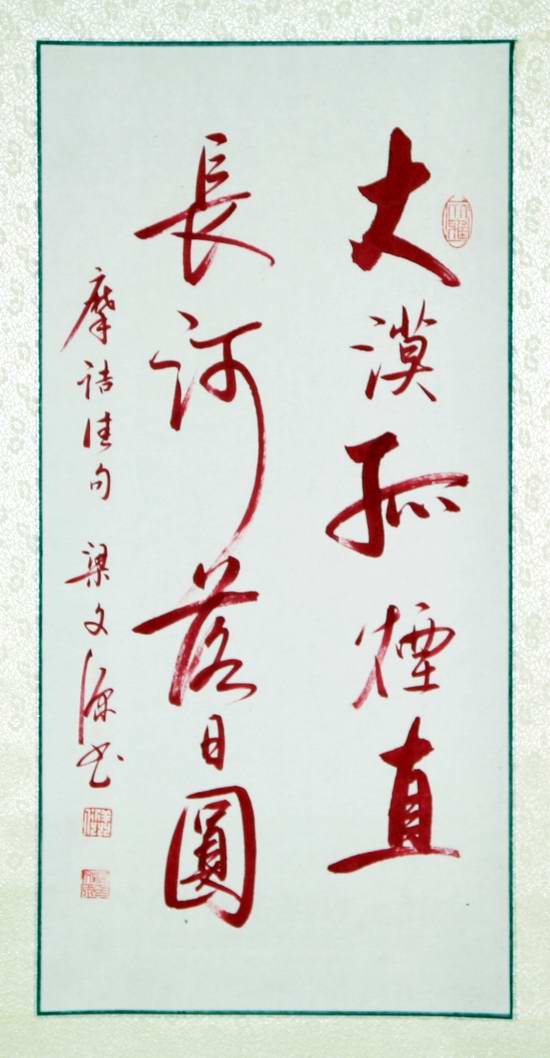 大漠孤煙直
長河落日圓
摩詰佳句 梁文源书